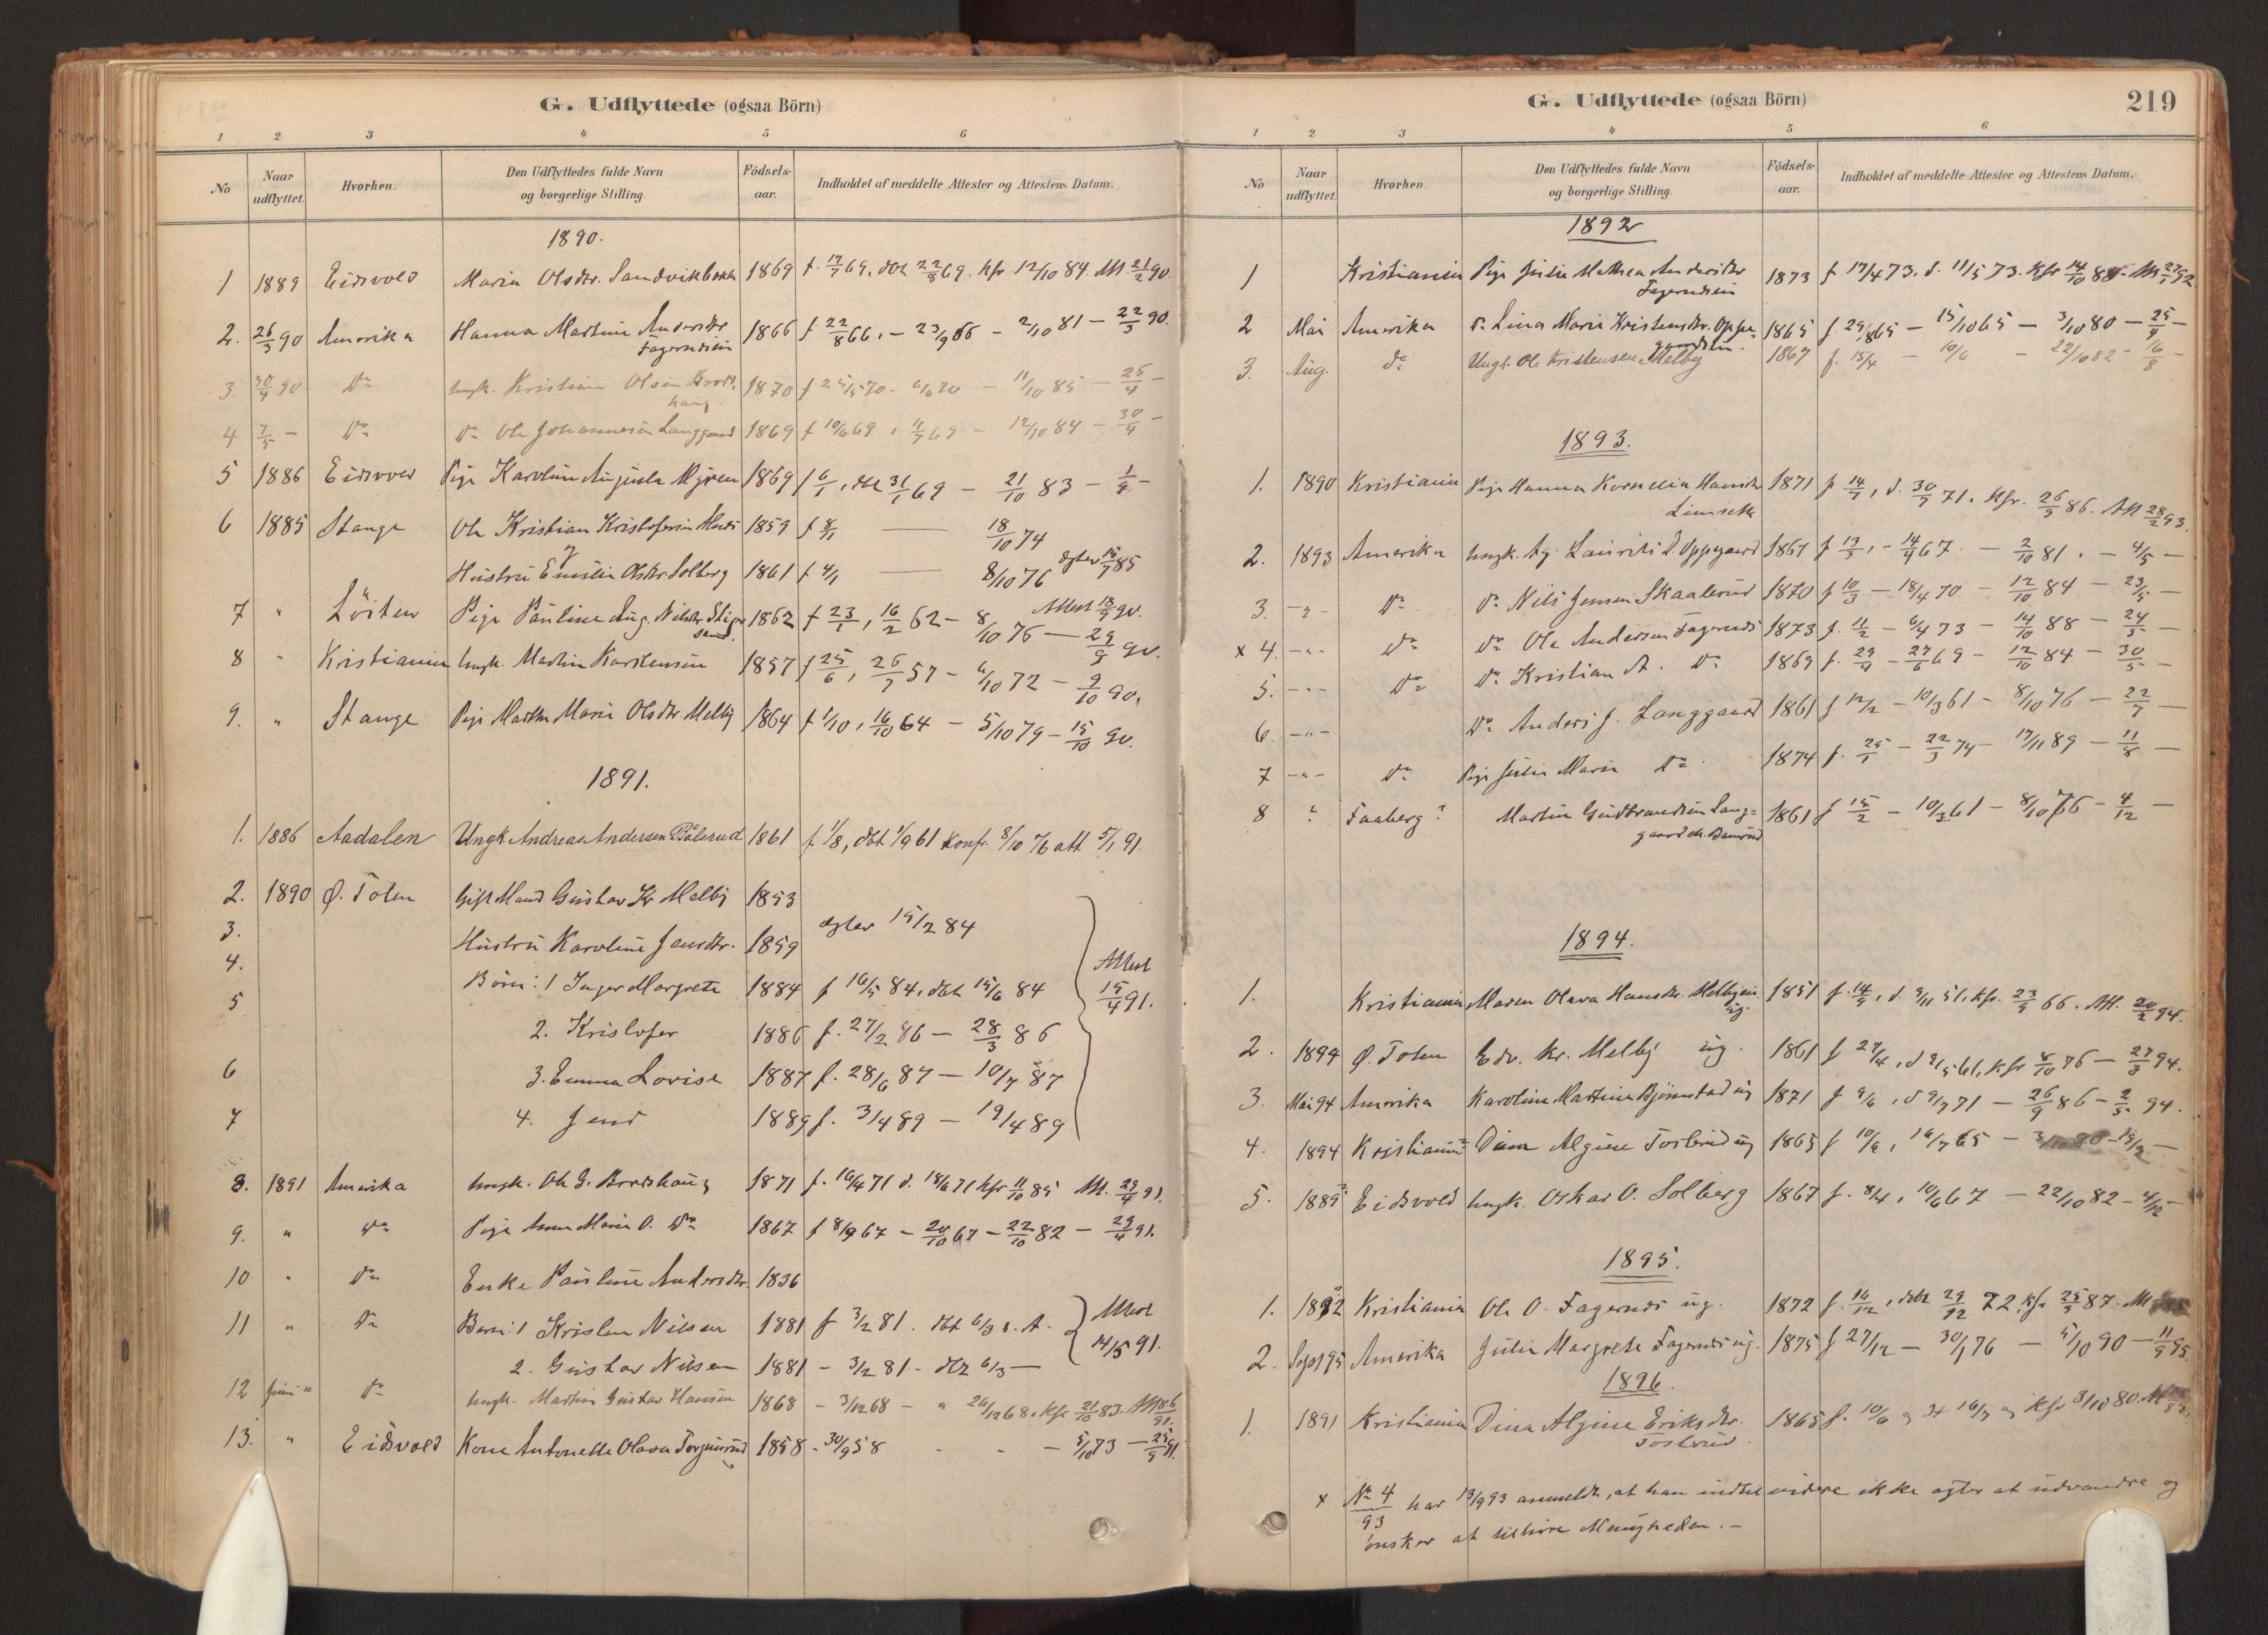 G. Udflyttede (ogsaa Börn)
1 2 3 4 5 6
No Naar udflyttet. Hvorhen. Den Udflyttedes fulde Navn og borgerlige Stilling. Födsels-aar. Indholdet af meddelte Attester og Attestens Datum.
1890.
1 1889 Eidsvold Maria Olsdtr. Sandvikbakken 1869 f. 17/7 69, dbt 22/8 69. Kfr. 12/10 84. Att. 21/2 90.
2. 26/3 90 Amerika Hanna Martine Andersdtr 1866 f 22/8 66. – 23/9 66 – 2/10 81 – 22/3 90.
Fagerndsein
3. 30/4 90 Do Ungk. Kristian Olsen Brods- 1870 f 25/5 70 – 6/6 70 – 11/10 85 – 26/4 –
haug
4 7/5 – Do Do Ole Johannesen Langgaard 1869 f 10/6 69, 11/7 69 – 12/10 84 – 30/4 –
5 1886 Eidsvold Pige Karoline Augusta Myren 1869 f 6/1, dbt 31/1 69 – 21/10 83 – 1/9 –
6 1885 Stange Ole Kristian Kristofersen 1859 f 8/1 — 18/10 74
Hustru Emilie Olsdtr Solberg 1861 f 4/1 — 8/10 76 Attest 18/9 90.
7 " Löiten Pige Pauline Aug. Nilsdtr 1862 f 23/1, 16/2 62 – 8/10 76 — 29/9 90.
8 " Kristiania Ungk. Martin Karstensen 1857 f 25/6, 26/7 57 – 6/10 72 – 9/10 90.
9. " Stange Pige Marthe Marie Olsdtr. Melby 1864 f 1/10, 16/10 64 – 5/10 79 – 15/10 90.
1891.
1. 1886 Aadalen Ungk Andreas Andersen Pålerud 1861 f. 1/8, dbt 1/9 61 Konf. 8/10 76 att 5/1 91.
2. 1890 Ø. Toten Gift Mand Gustav Kr. Melby 1853
3. Hustru Karoline Jensdtr. 1859
4. Börn: 1 Inger Margrete 1884 f 16/5 84, dbt 15/6 84 Attest 15/4 91.
5 2. Kristofer 1886 f. 27/2 86 – 28/3 86
6 3. Emma Lovise 1887 f. 28/6 87 – 10/7 87
7 4. Jens 1889 f. 3/4 89 – 19/4 89
8. 1891 Amerika Ungk. Ole G. Brodshaug 1871 f. 16/4 71 d. 18/6 71 Kfr 11/10 85 Att. 29/4 91.
9. " Do Pige Anne Marie O. Do 1867 f 8/9 67 – 20/10 67 – 22/10 82 – 29/4 91.
10 " Do Enke Pauline Andersdtr. 1836
11 " Do Barn: 1 Kristen Nilsen 1881 f 3/2 81. dbt 6/3 s. A. Attest 14/5 91.
2. Gustav Nilsen 1881 – 3/2 81 – dbt 6/3 —
12 Juni " Do Ungk. Martin Gustav Hansen 1868 – 3/12 68 – " 26/12 68. Kfr 21/10 83.
13. " Eidsvold Kone Antonette Olava Torgunrud 1858 – 30/9 58 – – – 5/10 73 – 25/9 91.
G. Udflyttede (ogsaa Börn) 219
1 2 3 4 5 6
No Naar udflyttet. Hvorhen. Den Udflyttedes fulde Navn og borgerlige Stilling. Födsels-aar. Indholdet af meddelte Attester og Attestens Datum.
1892
1 Kristiania Pige Julie Mathea Andersdtr 1873 f 17/4 73. d. 11/5 73. Kfr 14/10 88.
Fagerndsein
2 Mai Amerika Do Lina Marie Kristensdtr. Oppe- 1865 f 29/8 65 – 15/10 65 – 3/10 80 – 25/4 –
3. Aug. Do Ungk. Ole Kristensen Melby 1867 f. 15/4 – 10/6 – 22/10 82 – 16/8 –
1893.
1. 1890 Kristiania Pige Hanna Kornelia Hansdtr 1871 f 14/7, d. 30/7 71. Kfr. 26/9 86. Att 28/2 93.
2. 1893 Amerika Ungk. Ag. Laurits D. Oppegaard 1867 f 13/3, – 14/4 67 – 2/10 81. – 4/5 –
3. –"– Do Do Nils Jensen Skaalerud 1870 f 10/3 – 18/4 70 – 12/10 84 – 23/5 –
x 4. –"– Do Do Ole Andersen Fagernds 1873 f. 11/2 – 6/4 73 – 14/10 88 – 24/5 –
5. –"– Do Do Kristian A. Do 1869 f. 29/4 – 27/6 69 – 12/10 84 – 30/5 –
6. –"– Do Anders J. Langgaard 1861 f 12/2 – 10/3 61 – 8/10 76 – 22/7 –
7 –"– Do Pige Julie Marie Do 1874 f. 25/1 – 22/3 74 – 17/11 89 – 11/8 —
8 ? Faaberg? Martin Gudbrandsen Lang- 1861 f 15/2 – 10/3 61 – 8/10 76 – 4/12 —
1894.
1. Kristiania Maren Olava Hansdtr. Melby 1851 f. 14/9, d. 9/11 51, Kfr. 23/9 66. Att. 20/2 94.
2. 1894 Ø. Toten Edv. Kr. Melby ug. 1861 f 27/4, d 9/5 61, Kfr 8/10 76 – 27/3 94.
3. Mai 94 Amerika Karoline Martine Bjørnstad ug 1871 f 9/6, d 9/7 71 – 26/9 86 – 2/5 94.
4. 1894 Kristiania Dina Algine Tosterud ug 1865 f 10/6, 16/7 65 – 3/10 80 –
5. 1889? Eidsvold Ungk. Oskar O. Solberg 1867 f. 8/4, 10/6 67 — 22/10 82 – 4/12 –
1895.
1. Kristiania Ole O. Fagernds ug. 1872 f. 16/12, dbt 29/12 72, Kfr. 25/9 87.
2. Sept 95 Amerika Julie Margrete Fagernds ug. 1875 f 27/12 – 30/1 76 – 5/10 90 – 11/9 95.
1896.
1. 1891 Kristiania Dina Algine Eriksdtr. 1865 f. 10/6 16/7 Kfr 3/10 80
Tosterud
x No 4/93 har 13/9 93 anmeldt, at han indtil videre ikke agter at udvandre og
önsker at tilhöre Menigheden. –